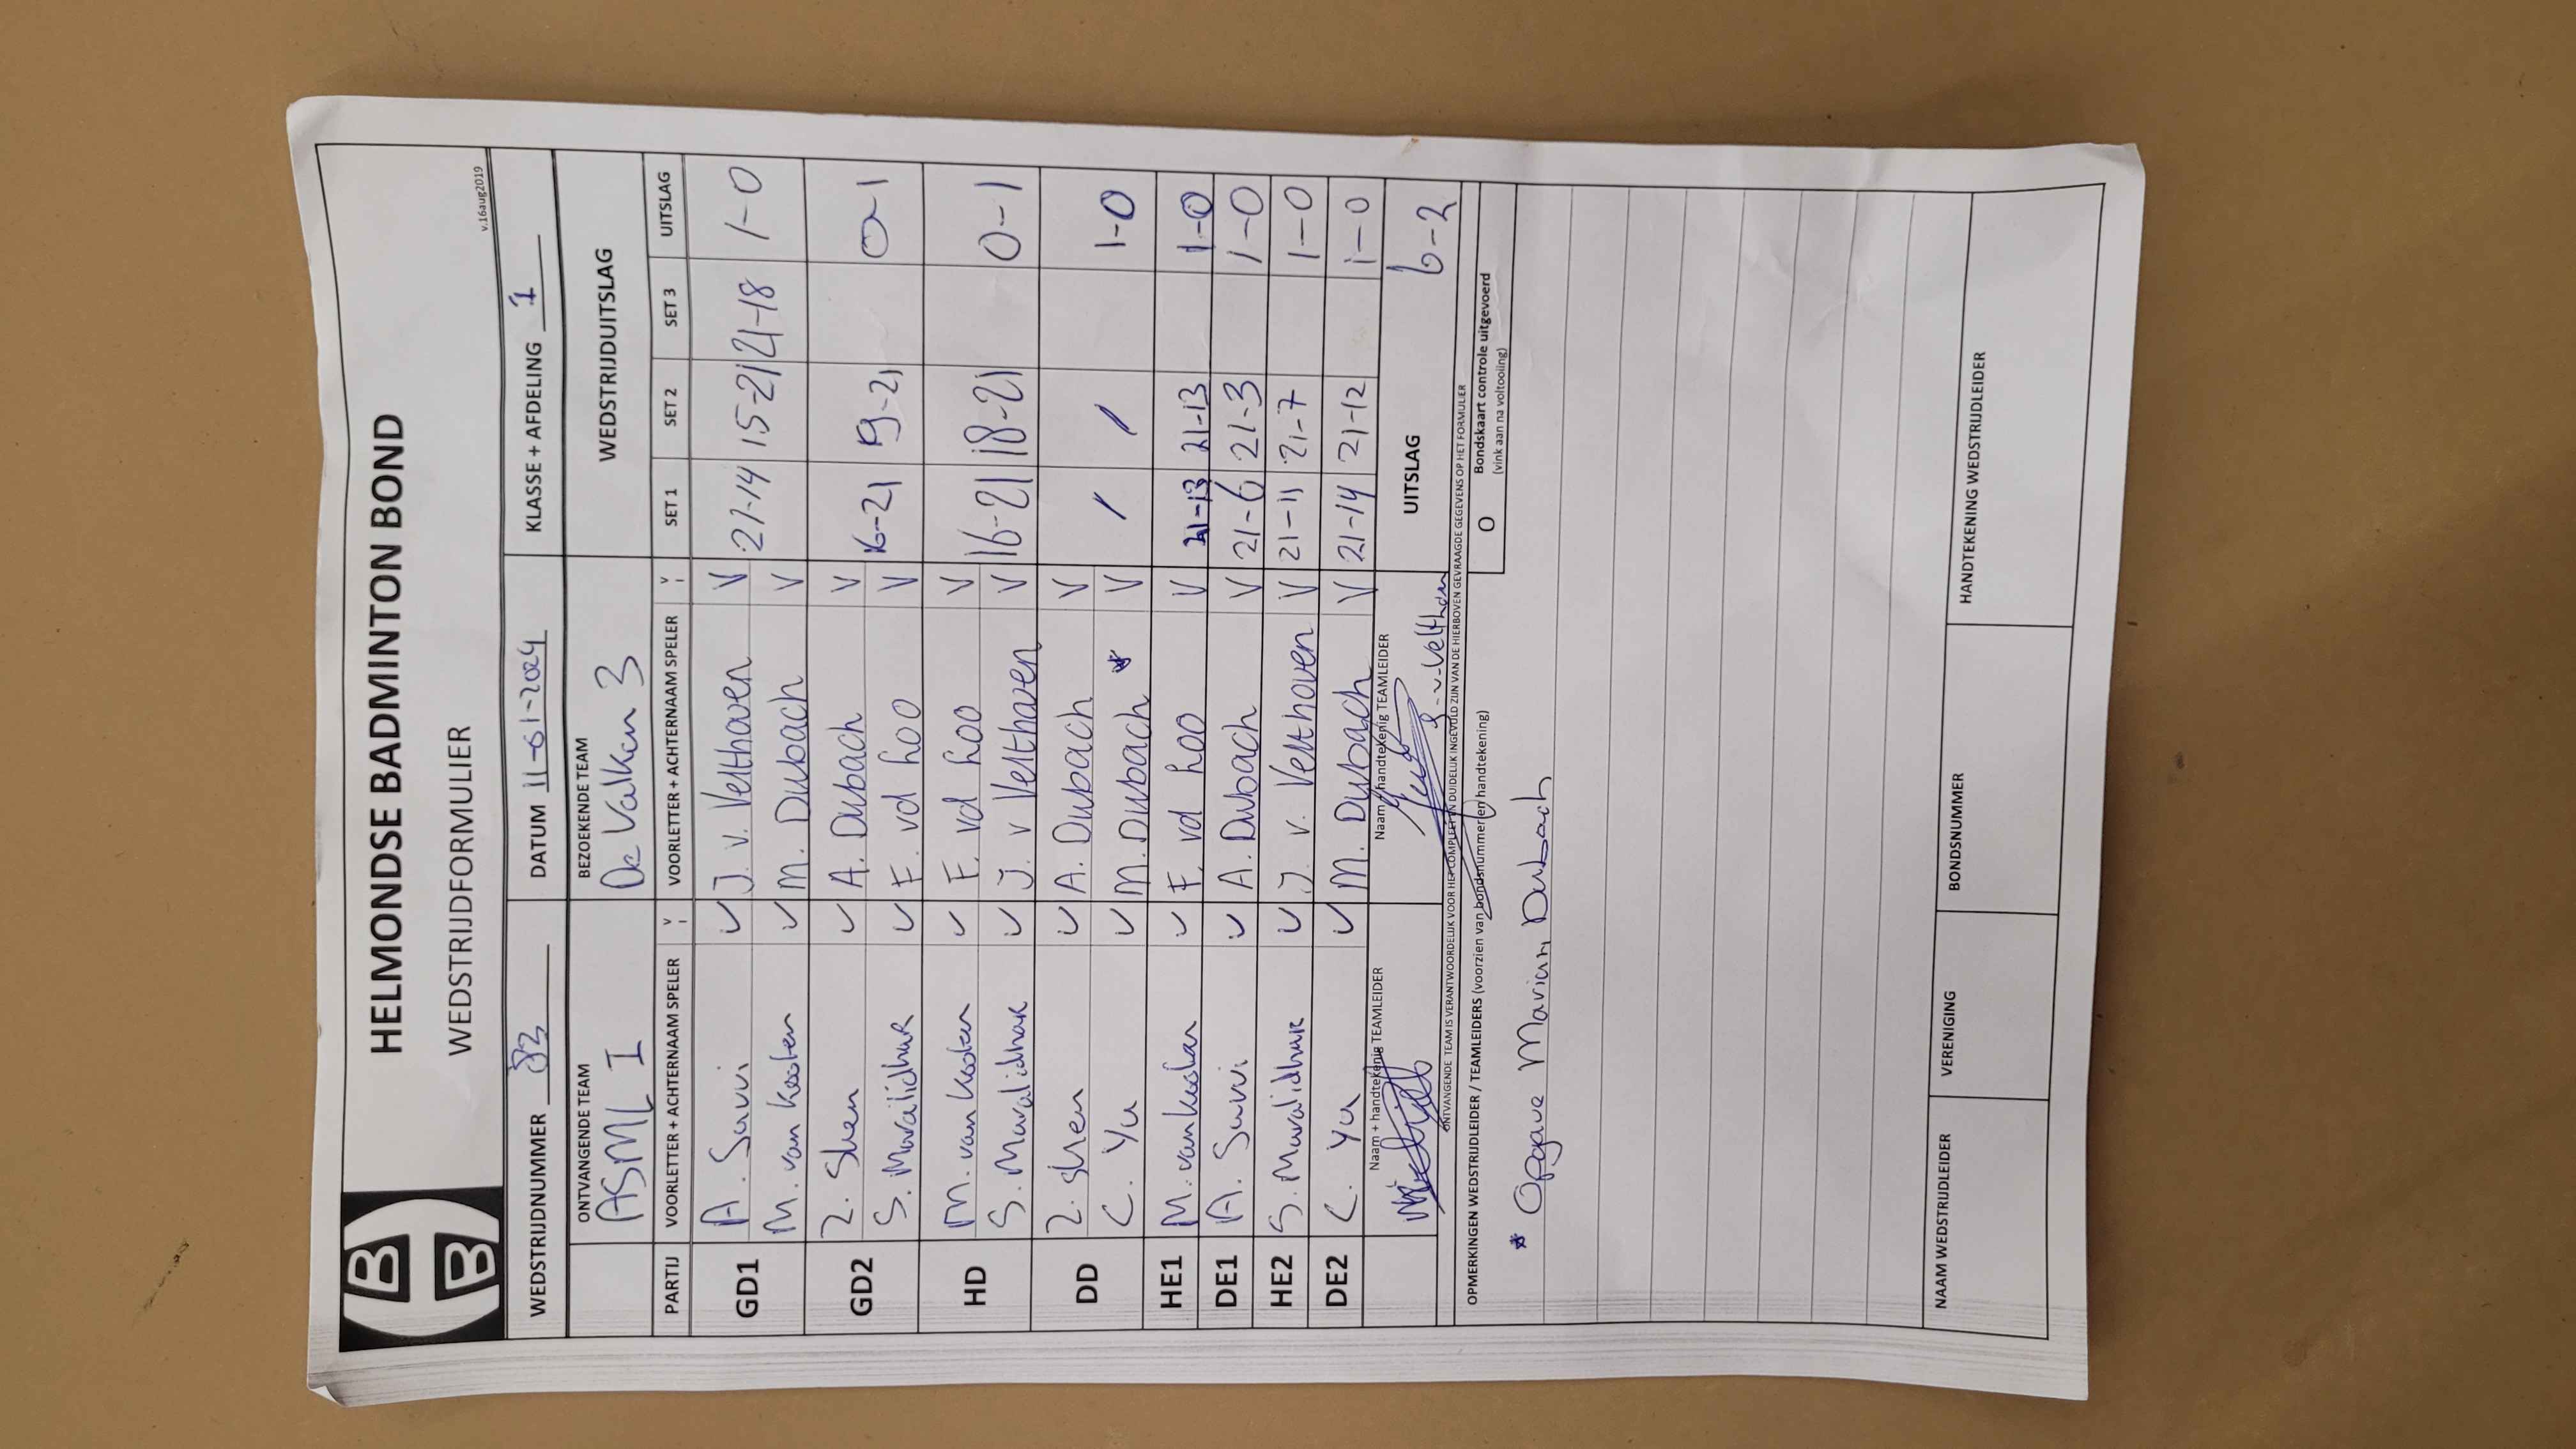 HELMONDSE BADMINTON BOND
WEDSTRIJDFORMULIER
v.16aug2019
WEDSTRIJDNUMMER 83 DATUM 11-01-2024 KLASSE + AFDELING 1
ONTVANGENDE TEAM BEZOEKENDE TEAM WEDSTRIJDUITSLAG
ASML I De Valken 3
PARTIJ VOORLETTER + ACHTERNAAM SPELER V VOORLETTER + ACHTERNAAM SPELER V SET 1 SET 2 SET 3 UITSLAG
GD1 A. Savvi V J. v. Velthoven V 21-14 15-21 21-18 1-0
M. van Kooten V M. Dubach V
GD2 Z. Shen V A. Dubach V 16-21 19-21 0-1
S. Muralidhar V F. vd Loo V
HD M. van Kooten V F. vd Loo V 16-21 18-21 0-1
S. Muralidhar V J. v Velthoven V
DD Z. Shen V A. Dubach V / / 1-0
C. Yu V M. Dubach * V
HE1 M. van Kooten V F. vd Loo V 21-13 21-13 1-0
DE1 A. Savvi V A. Dubach V 21-6 21-3 1-0
HE2 S. Muralidhar V J. v. Velthoven V 21-11 21-7 1-0
DE2 C. Yu V M. Dubach V 21-14 21-12 1-0
Naam + handtekenig TEAMLEIDER Naam + handtekenig TEAMLEIDER UITSLAG 6-2
J. v. Velthoven
ONTVANGENDE TEAM IS VERANTWOORDELIJK VOOR HET COMPLEET EN DUIDELIJK INGEVULD ZIJN VAN DE HIERBOVEN GEVRAAGDE GEGEVENS OP HET FORMULIER
OPMERKINGEN WEDSTRIJDLEIDER / TEAMLEIDERS (voorzien van bondsnummer en handtekening) O Bondskaart controle uitgevoerd
(vink aan na voltooiing)
* Opgave Marian Dubach
NAAM WEDSTRIJDLEIDER VERENIGING BONDSNUMMER HANDTEKENING WEDSTRIJDLEIDER